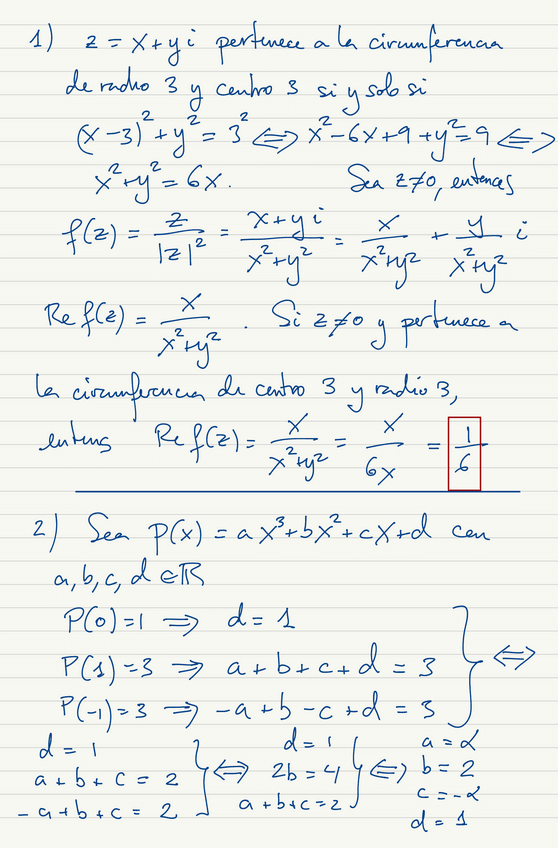 1) z = x + y i pertenece a la circunferencia
de radio 3 y centro 3 si y solo si
(x-3)² + y² = 3² ⟺ x² - 6x + 9 + y² = 9 ⟺
x² + y² = 6x. Sea z ≠ 0, entonces
f(z) = z/|z|² = (x + y i)/(x² + y²) = x/(x² + y²) + y/(x² + y²) i
Re f(z) = x/(x² + y²). Si z ≠ 0 y pertenece a
la circunferencia de centro 3 y radio 3,
entonces Re f(z) = x/(x² + y²) = x/6x = 1/6
2) Sea P(x) = a x³ + b x² + c x + d con
a, b, c, d ∈ ℝ
P(0) = 1 ⟹ d = 1
P(1) = 3 ⟹ a + b + c + d = 3 } ⟺
P(-1) = 3 ⟹ -a + b - c + d = 3
d = 1 d = 1 a = α
a + b + c = 2 } ⟺ 2b = 4 } ⟺ b = 2
-a + b + c = 2 a + b + c = 2 c = -α
d = 1